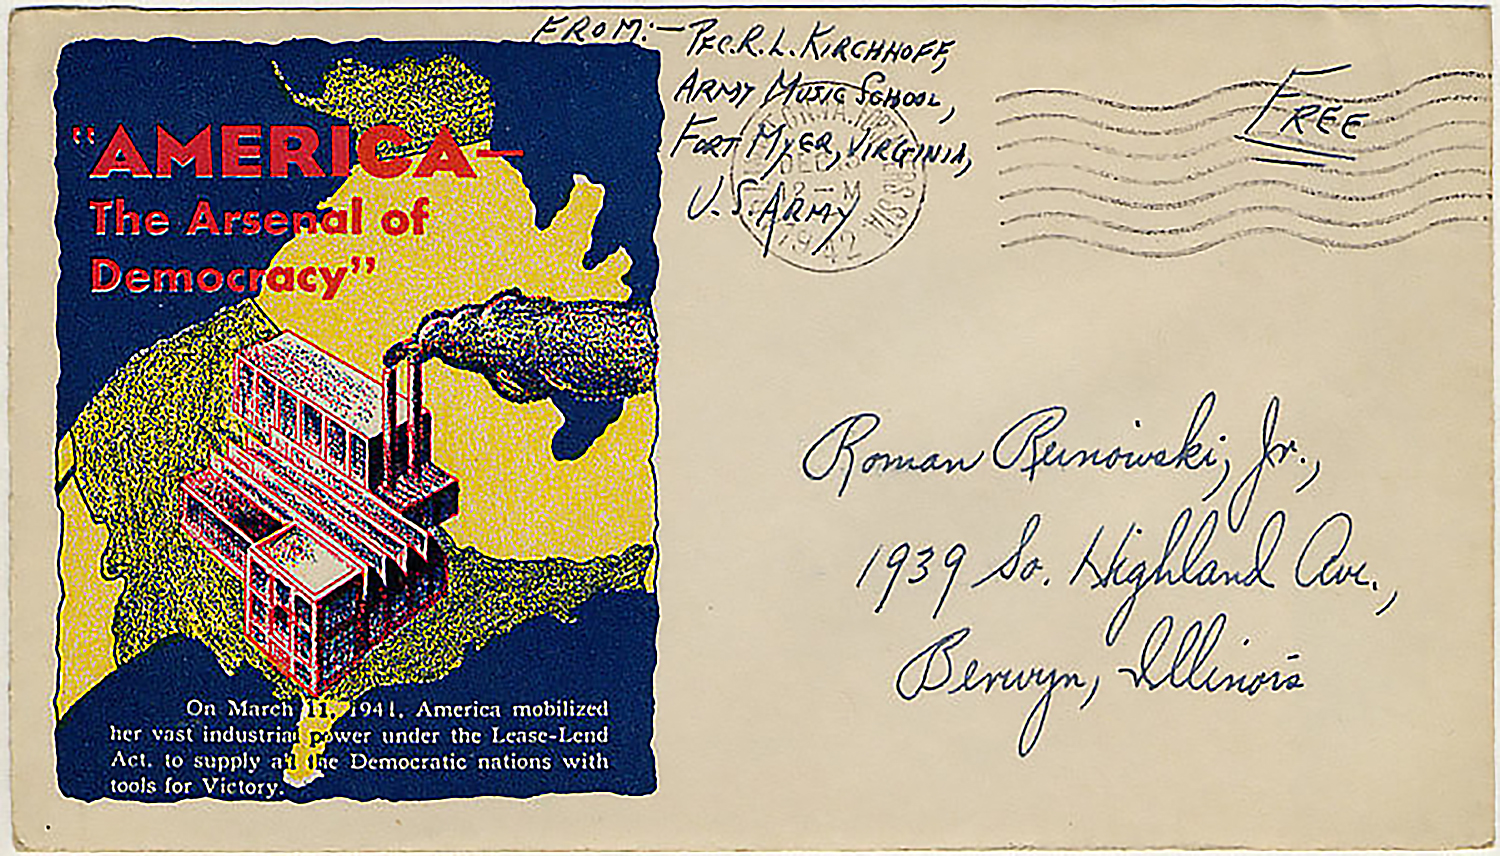 FROM:— PFC. R. L. KIRCHHOFF,
ARMY MUSIC SCHOOL,
FORT MYER, VIRGINIA,
U. S. ARMY
FREE
DEC
12 — M
1942
"AMERICA—
The Arsenal of
Democracy"
On March 11, 1941, America mobilized
her vast industrial power under the Lease-Lend
Act, to supply all the Democratic nations with
tools for Victory.
Roman Runowski, Jr.,
1939 So. Highland Ave.,
Berwyn, Illinois